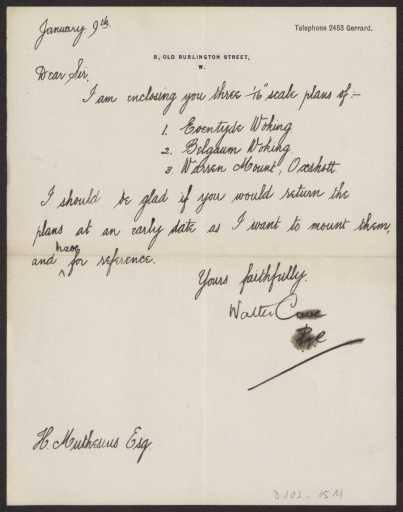 January 9th.
Telephone 2453 Gerrard.
8, OLD BURLINGTON STREET,
W.
Dear Sir,
I am enclosing you three 1/16" scale plans of:-
1. Eventyde Woking
2. Belgaum Woking
3. Warren Mount, Oxshott.
I should be glad if you would return the
plans at an early date as I want to mount them,
have
and ^ for reference.
Yours faithfully.
Walter Cave
H. Muthesius Esq.